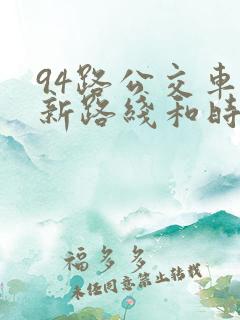 94路公交车
新路綫和时
福多多
未经同意禁止转载